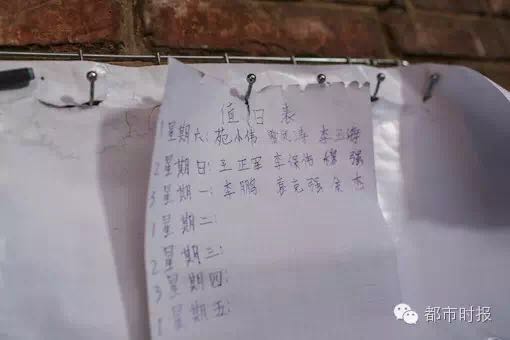 值日表
1 星期六: 范小伟 李玉海
2 星期日: 王正军 李保伟 穆强
3 星期一: 李鹏 袁克强 余杰
1 星期二:
2 星期三:
3 星期四:
1 星期五:
都市时报